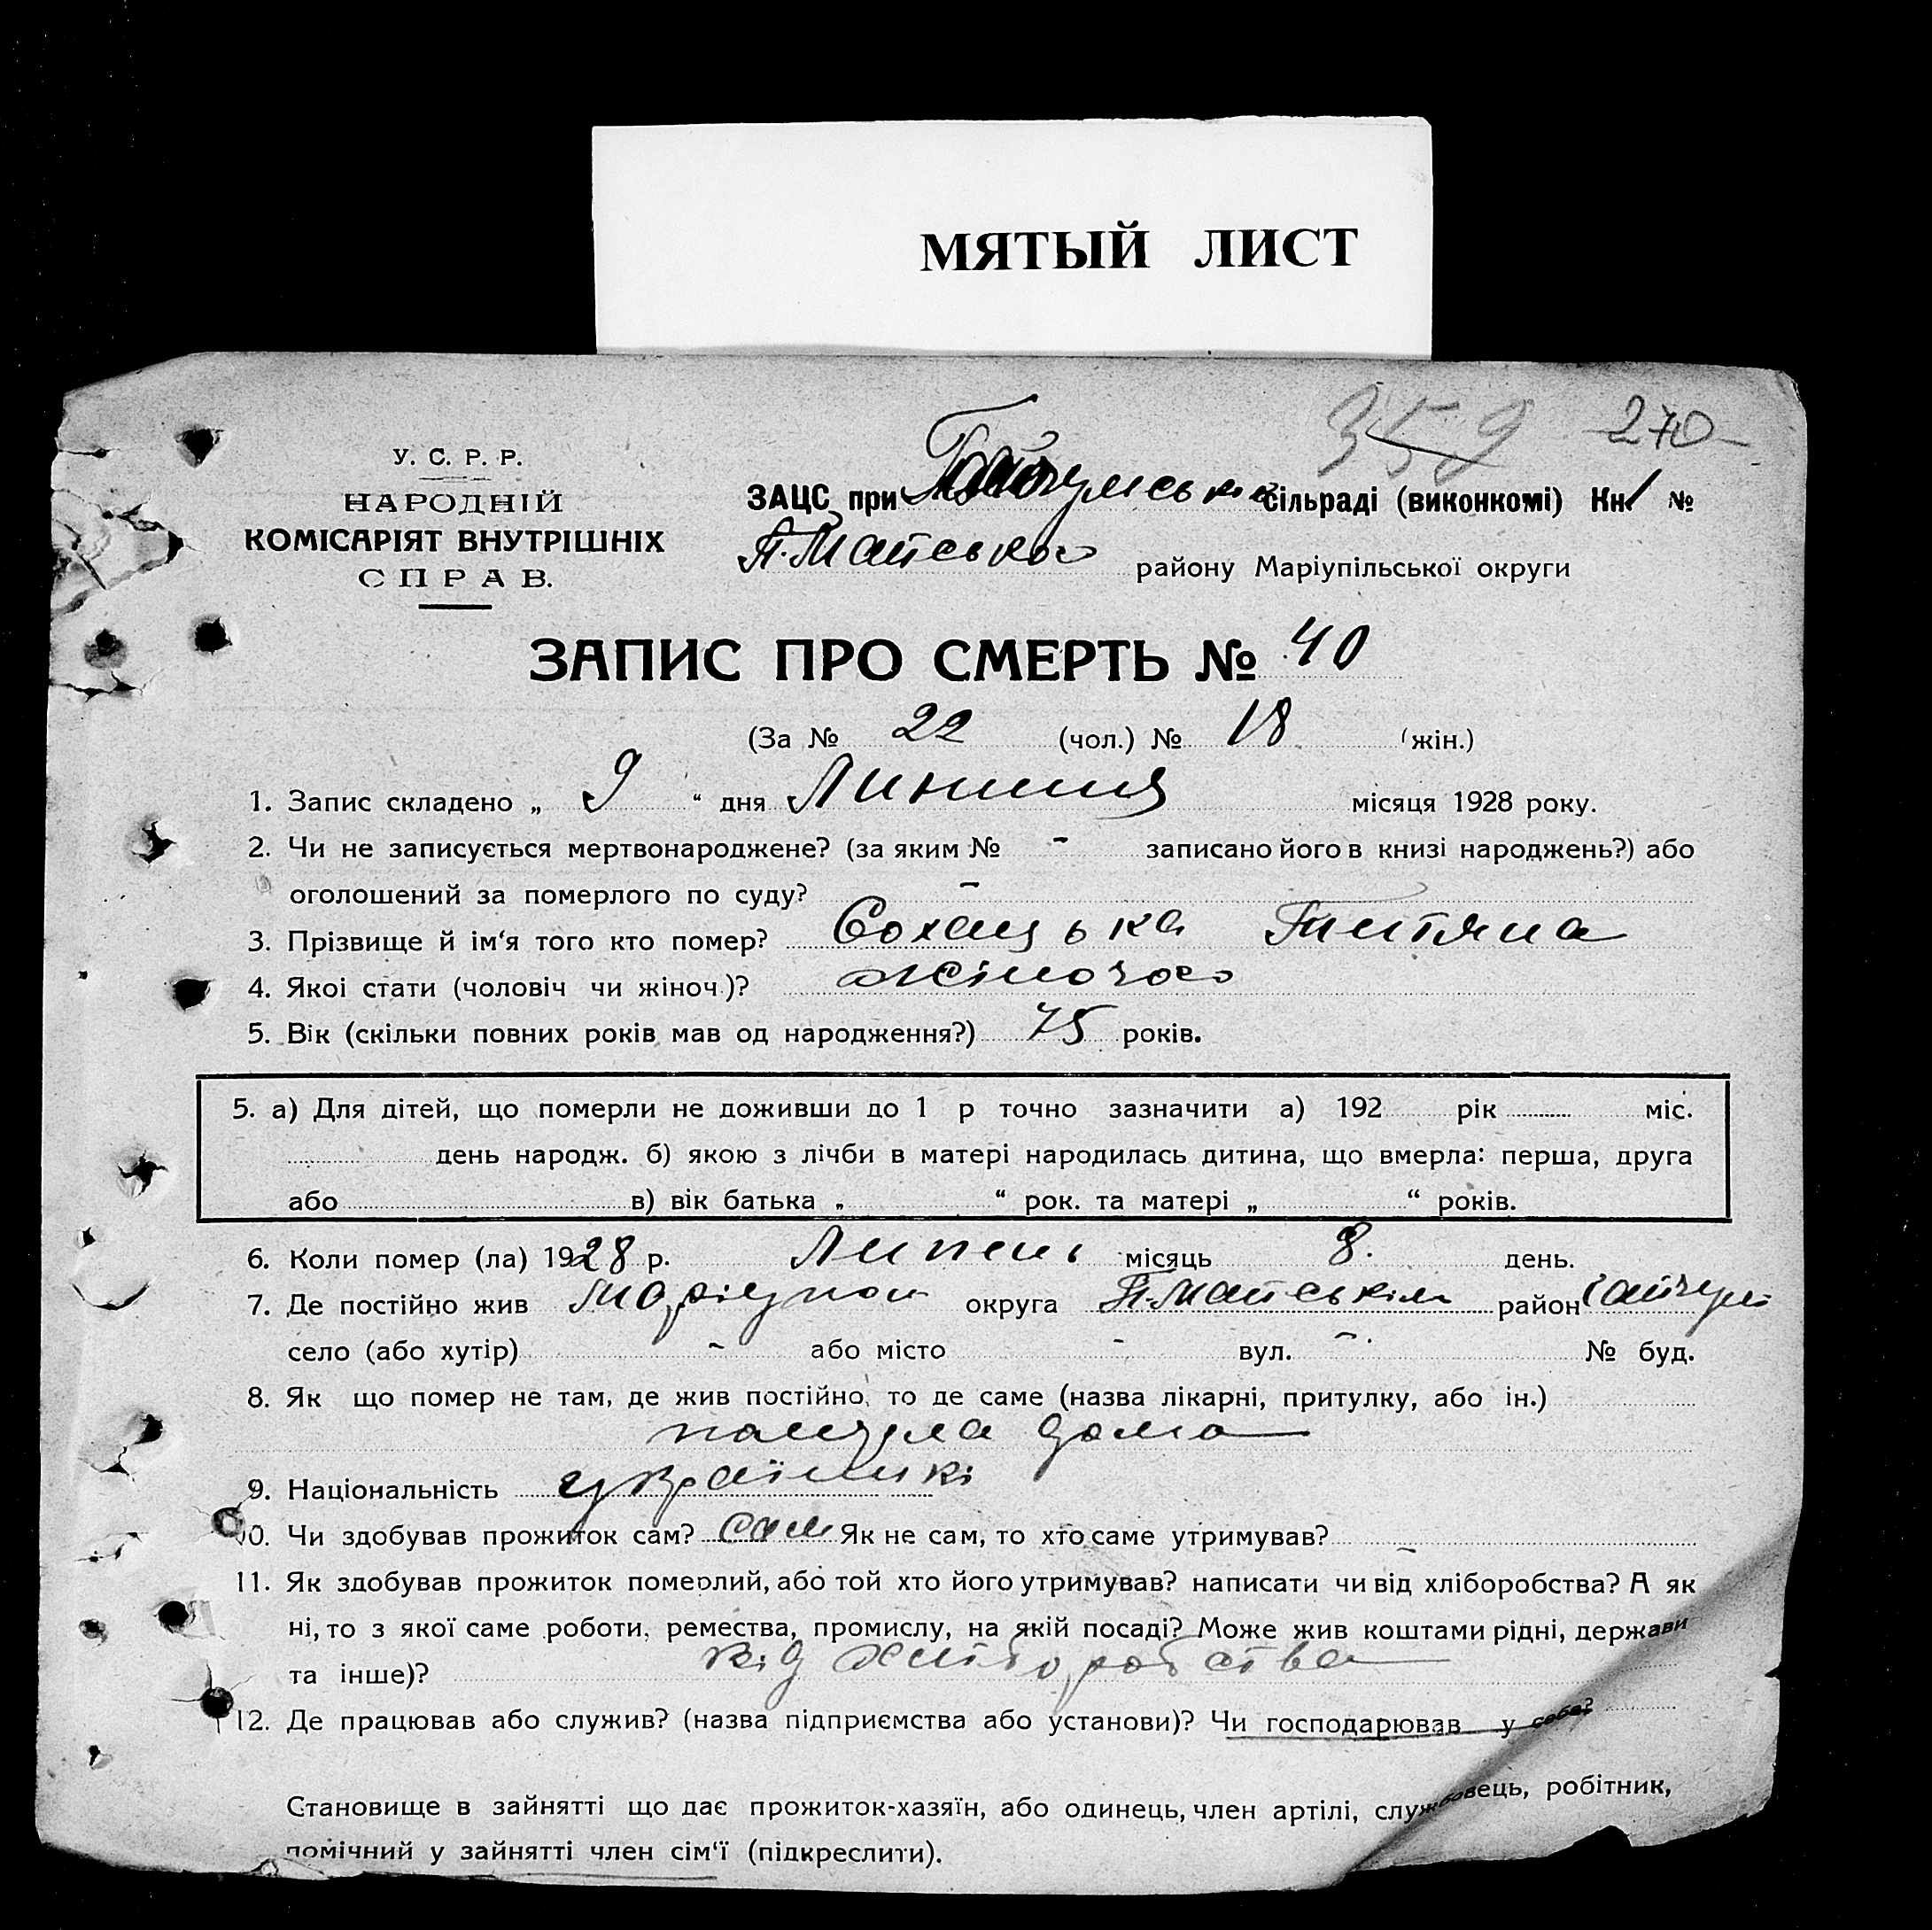 МЯТЫЙ ЛИСТ
359 270
У. С. Р. Р.
НАРОДНІЙ
КОМІСАРІЯТ ВНУТРІШНІХ
СПРАВ.
ЗАЦС при Гайчульській сільраді (виконкомі) Кн. 1 №
П.Майського району Маріупільської округи
ЗАПИС ПРО СМЕРТЬ № 40
(За № 22 (чол.) № 18 (жін.)
1. Запис складено „ 9 “ дня Липння місяця 1928 року.
2. Чи не записується мертвонароджене? (за яким № - записано його в книзі народжень?) або
оголошений за померлого по суду? -
3. Прізвище й ім‘я того кто помер? Сохацька Титяна
4. Якоі стати (чоловіч чи жіноч.)? жіночого
5. Вік (скільки повних років мав од народження?) 75 років.
5. а) Для дітей, що померли не доживши до 1 р точно зазначити а) 192 рік міс.
день народж. б) якою з лічби в матері народилась дитина, що вмерла: перша, друга
або в) вік батька „ “ рок. та матері „ “ років.
6. Коли помер (ла) 1928 р. Липень місяць 8. день.
7. Де постійно жив Маріупол округа П.Майським район Гайчул
село (або хутір) - або місто - вул. - № буд.
8. Як що помер не там, де жив постійно, то де саме (назва лікарні, притулку, або ін.)
померла дома
9. Національність українкі
10. Чи здобував прожиток сам? сам Як не сам, то хто саме утримував? -
11. Як здобував прожиток померлий, або той хто його утримував? написати чи від хліборобства? А як
ні, то з якої саме роботи, ремества, промислу, на якій посаді? Може жив коштами рідні, держави
та інше)? від хліборобства
12. Де працював або служив? (назва підприємства або установи)? Чи господарював у себе?
Становище в зайнятті що дає прожиток-хазяїн, або одинець, член артілі, службовець, робітник,
помічний у зайнятті член сім‘ї (підкреслити).